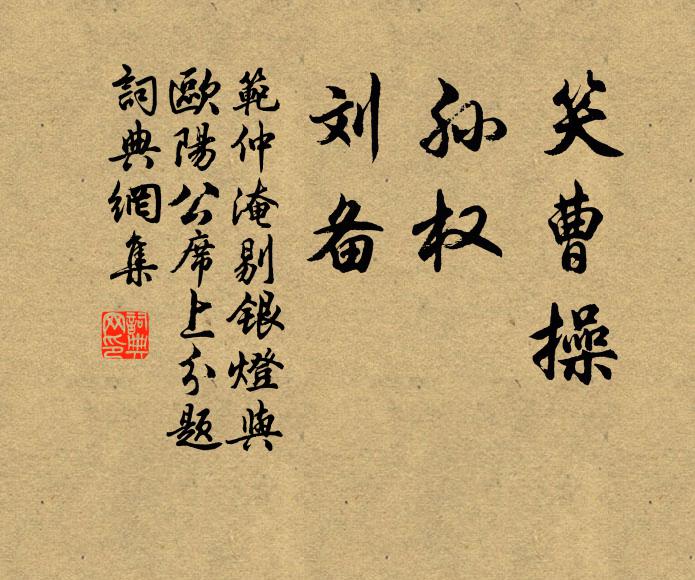 笑曹操
孙权
刘备
範仲淹剔銀燈與
歐陽公席上分題
詞典網集
詞典
网印